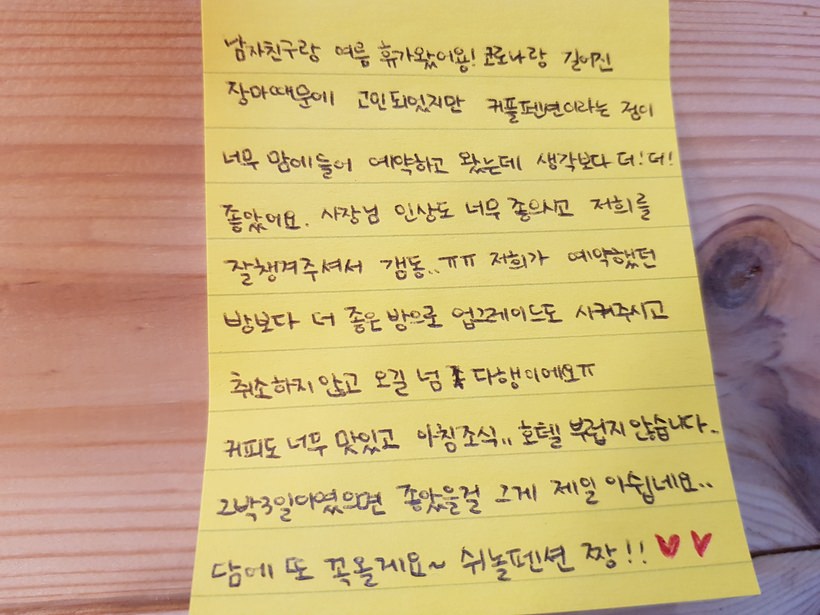 남자친구랑 여름 휴가왔어용! 코로나랑 길어진
장마때문에 고민되었지만 커플펜션이라는 점이
너무 맘에들어 예약하고 왔는데 생각보다 더! 더!
좋았어요. 사장님 인상도 너무 좋으시고 저희를
잘챙겨주셔서 갬동..ㅠㅠ 저희가 예약했던
방보다 더 좋은 방으로 업그레이드도 시켜주시고
취소하지 않고 오길 넘 다행이에요ㅠ
커피도 너무 맛있고 아침조식,, 호텔 부럽지 않습니다..
2박3일이였으면 좋았을걸 그게 제일 아쉽네요..
담에 또 꼭올게요~ 쉬놀펜션 짱!! ♥♥